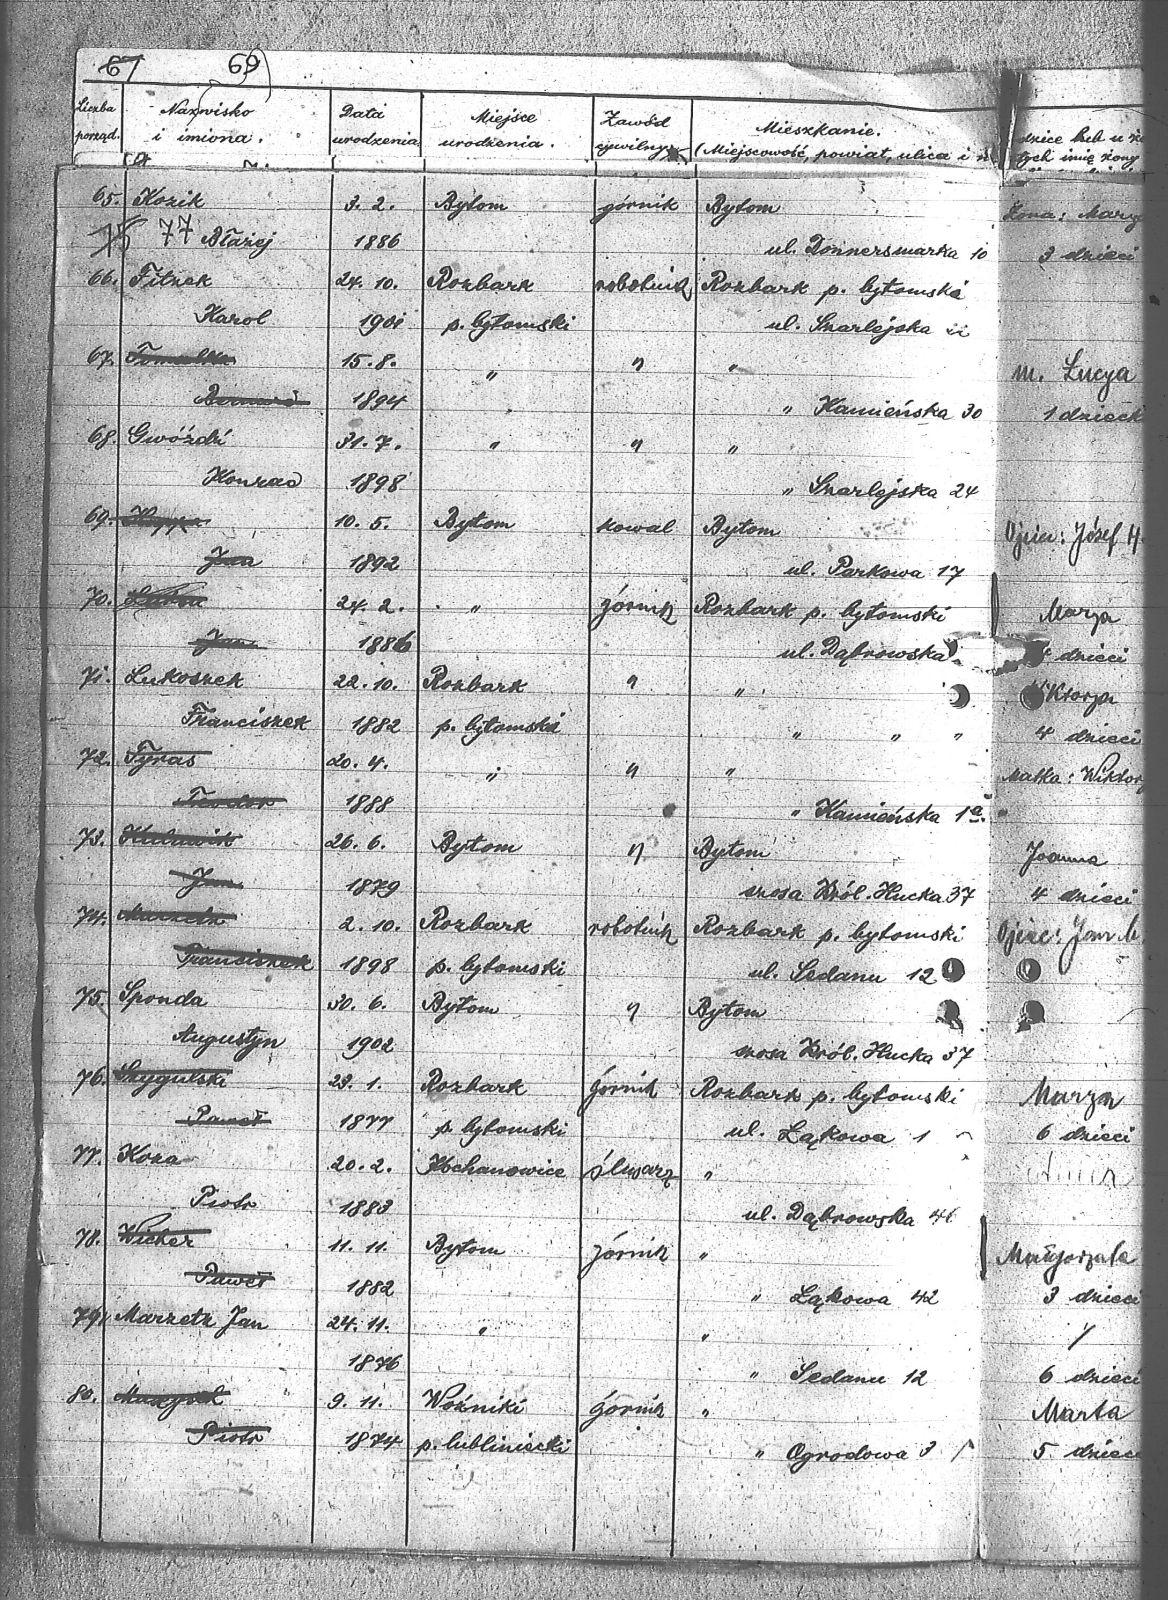 67 69
Liczba porząd. Nazwisko i imiona. Data urodzenia Miejsce urodzenia. Zawód cywilny Mieszkanie. (Miejscowość, powiat, ulica i
65. Kozik 3. 2. Bytom górnik Bytom Żona:
77 Błażej 1886 ul. Donnersmarka 10 3 dzieci
66. Fitzek 24. 10. Rozbark robotnik Rozbark p. bytomski
Karol 1901 p. bytomski ul. Szarlejska
67. 15. 8. " " " m. Lucya
1894 " Kamieńska 30 1 dzieck
68. Gwóźdź 31. 7. " " "
Konrad 1898 " Szarlejska 24
69. 10. 5. Bytom kowal Bytom Ojciec: Józef
Jan 1892 ul. Parkowa 17
70. 24. 2. " górnik Rozbark p. bytomski Marja
Jan 1886 ul. Dąbrowska dzieci
71. Lukoszek 22. 10. Rozbark " "
Franciszek 1882 p. bytomski " " " 4 dzieci
72. Tyras 20. 4. " " " Matka: Wiktor
Teodor 1888 " Kamieńska 1a.
73. 26. 6. Bytom " Bytom Joanna
Jan 1879 szosa Król. Hucka 37 4 dzieci
74. 2. 10. Rozbark robotnik Rozbark p. bytomski Ojciec: Jan
Franciszek 1898 p. bytomski ul. Sedanu 12
75. Sponda 30. 6. Bytom " Bytom
Augustyn 1902 szosa Król. Hucka 37
76. Szygulski 23. 1. Rozbark górnik Rozbark p. bytomski
Paweł 1877 p. bytomski ul. Łąkowa 1 6 dzieci
77. Koza 20. 2. Kochanowice ślusarz "
Piotr 1883 ul. Dąbrowska 46
78. Wicher 11. 11. Bytom górnik " Małgorzata
Paweł 1882 " Łąkowa 42 3 dzieci
79. Marzetz Jan 24. 11. " "
1876 " Sedanu 12 6 dzieci
80. 9. 11. Woźniki górnik " Marta
Piotr 1874 p. lubliniecki " Ogrodowa 3 5 dzieci